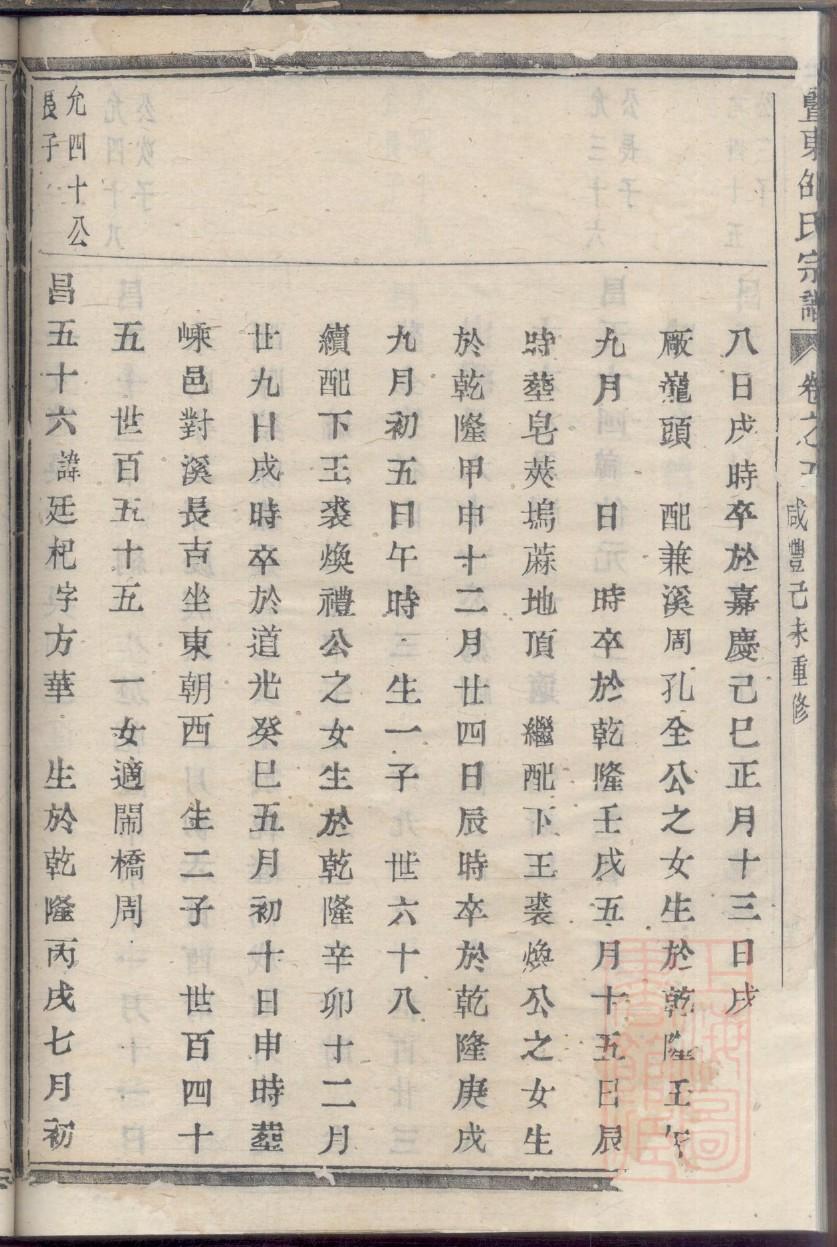 暨東邰氏宗譜 卷之五 咸豐己未重修
八日戌時卒於嘉慶己巳正月十三日戌
廠瀧頭 配兼溪周孔全公之女生於乾隆壬午
九月 日 時卒於乾隆壬戌五月十五日辰
時塟皂莢塢蔴地頂 繼配下王裘煥公之女生
於乾隆甲申十二月廿四日辰時卒於乾隆庚戌
九月初五日午時 生一子 世六十八
續配下王裘煥禮公之女生於乾隆辛卯十二月
廿九日戌時卒於道光癸巳五月初十日申時塟
嵊邑對溪長古坐東朝西 生二子 世百四十
五 世百五十五 一女適閙橋周
允四十公
長子
昌五十六諱廷杞字方華 生於乾隆丙戌七月初